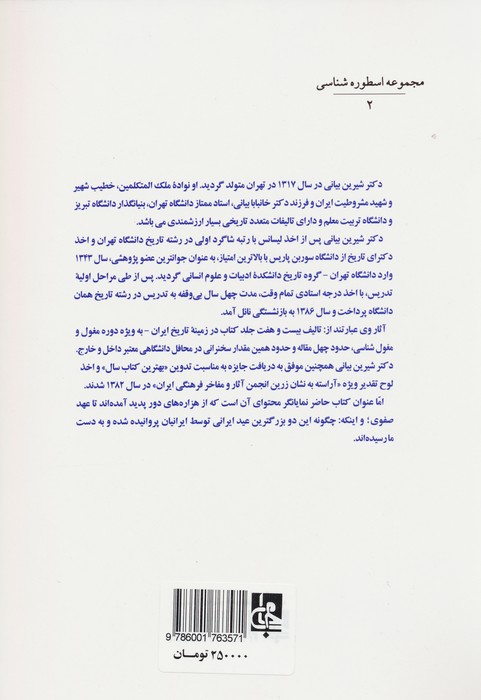 مجموعه اسطوره شناسی
۲
دکتر شیرین بیانی در سال ۱۳۱۷ در تهران متولد گردید. او نوادهٔ ملک المتکلمین، خطیب شهیر
و شهید مشروطیت ایران و فرزند دکتر خانبابا بیانی، استاد ممتاز دانشگاه تهران، بنیانگذار دانشگاه تبریز
و دانشگاه تربیت معلم و دارای تالیفات متعدد تاریخی بسیار ارزشمندی می باشد.
دکتر شیرین بیانی پس از اخذ لیسانس با رتبه شاگرد اولی در رشته تاریخ دانشگاه تهران و اخذ
دکترای تاریخ از دانشگاه سوربن پاریس با بالاترین امتیاز، به عنوان جوانترین عضو پژوهشی، سال ۱۳۴۳
وارد دانشگاه تهران - گروه تاریخ دانشکدهٔ ادبیات و علوم انسانی گردید. پس از طی مراحل اولیهٔ
تدریس، با اخذ درجه استادی تمام وقت، مدت چهل سال بی‌وقفه به تدریس در رشته تاریخ همان
دانشگاه پرداخت و سال ۱۳۸۶ به بازنشستگی نائل آمد.
آثار وی عبارتند از: تالیف بیست و هفت جلد کتاب در زمینهٔ تاریخ ایران - به ویژه دوره مغول و
مغول شناسی، حدود چهل مقاله و حدود همین مقدار سخنرانی در محافل دانشگاهی معتبر داخل و خارج.
دکتر شیرین بیانی همچنین موفق به دریافت جایزه به مناسبت تدوین «بهترین کتاب سال» و اخذ
لوح تقدیر ویژه «آراسته به نشان زرین انجمن آثار و مفاخر فرهنگی ایران» در سال ۱۳۸۲ شدند.
امّا عنوان کتاب حاضر نمایانگر محتوای آن است که از هزاره‌های دور پدید آمده‌اند تا عهد
صفوی؛ و اینکه: چگونه این دو بزرگترین عید ایرانی توسط ایرانیان پروانیده شده و به دست
ما رسیده‌اند.
9 786001 763571
۲۵۰۰۰۰ تومـان